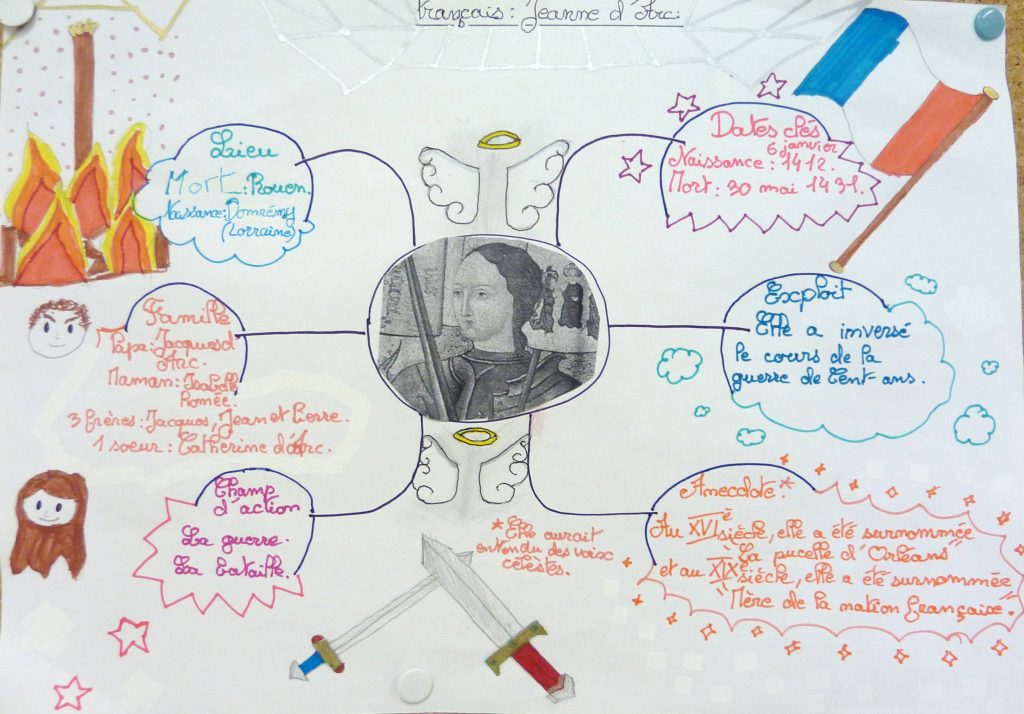 français : Jeanne d'Arc.
Lieu
Mort : Rouen.
Naissance : Domrémy
(Lorraine)
Dates clés
6 janvier
Naissance : 1412.
Mort : 30 mai 1431.
Famille
Papa : Jacques d
Arc.
Maman : Isabelle
Romée.
3 frères : Jacques, Jean et Pierre.
1 soeur : Catherine d'Arc.
Exploit
Elle a inversé
le cours de la
guerre de Cent-ans.
Champ
d'action
La guerre.
La bataille.
Anecdote *
Au XVIè siècle, elle a été surnommée
"La pucelle d'Orléans"
et au XIXè siècle, elle a été surnommée
"Mère de la nation française".
* Elle aurait
entendu des voix
célèstes.